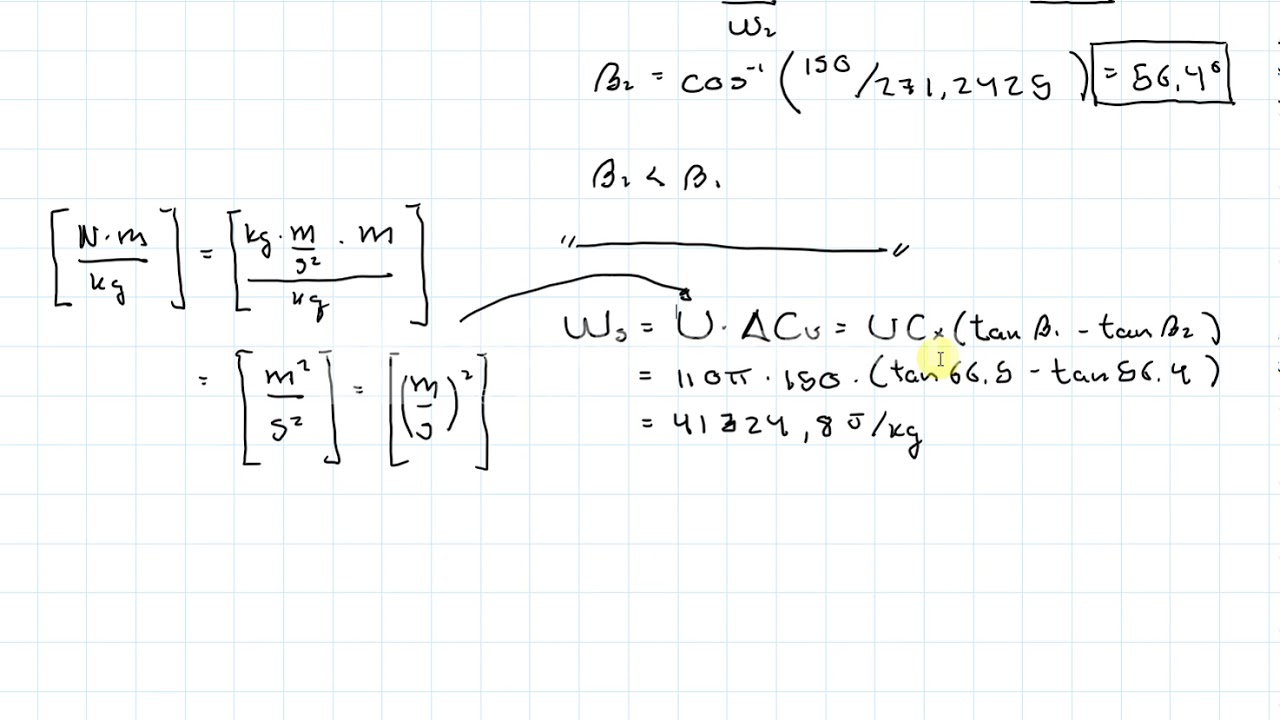 w₂
β₂ = cos⁻¹ (150/271,2425) = 56,4°
β₂ < β₁
[N·m/kg] = [kg·m/s²·m/kg]
= [m²/s²] = [(m/s)²]
" ——— "
Ws = U·ΔCu = UCx(tan β₁ - tan β₂)
= 110π·150·(tan 66,5 - tan 56,4)
= 41324,8 J/kg